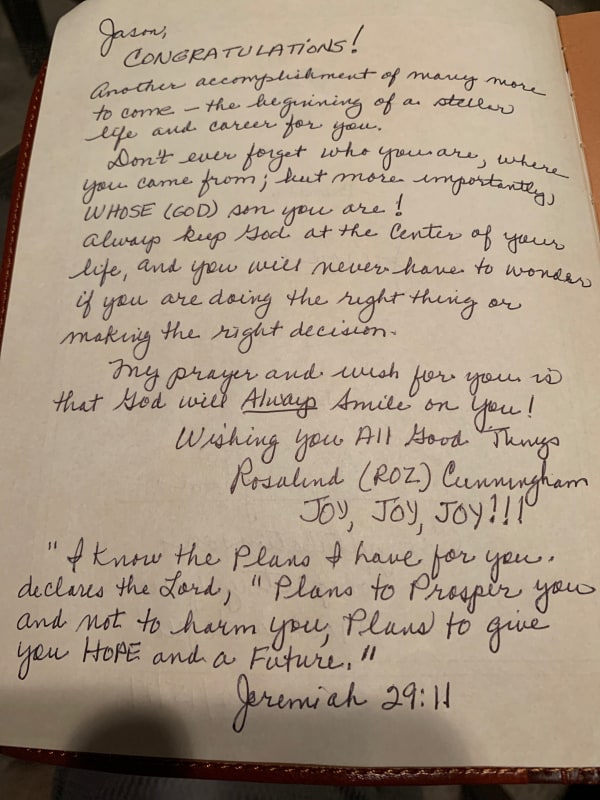 Jason,
CONGRATULATIONS!
Another accomplishment of many more
to come – the beginning of a steller
life and career for you.
Don't ever forget who you are, where
you came from; but more importantly,
WHOSE (GOD) son you are!
Always keep God at the Center of your
life, and you will never have to wonder
if you are doing the right thing or
making the right decision.
My prayer and wish for you is
that God will Always Smile on you!
Wishing you All Good Things
Rosalind (ROZ) Cunningham
JOY, JOY, JOY!!!
"I Know the Plans I have for you.
declares the Lord, "Plans to Prosper you
and not to harm you, Plans to give
you HOPE and a Future."
Jeremiah 29:11